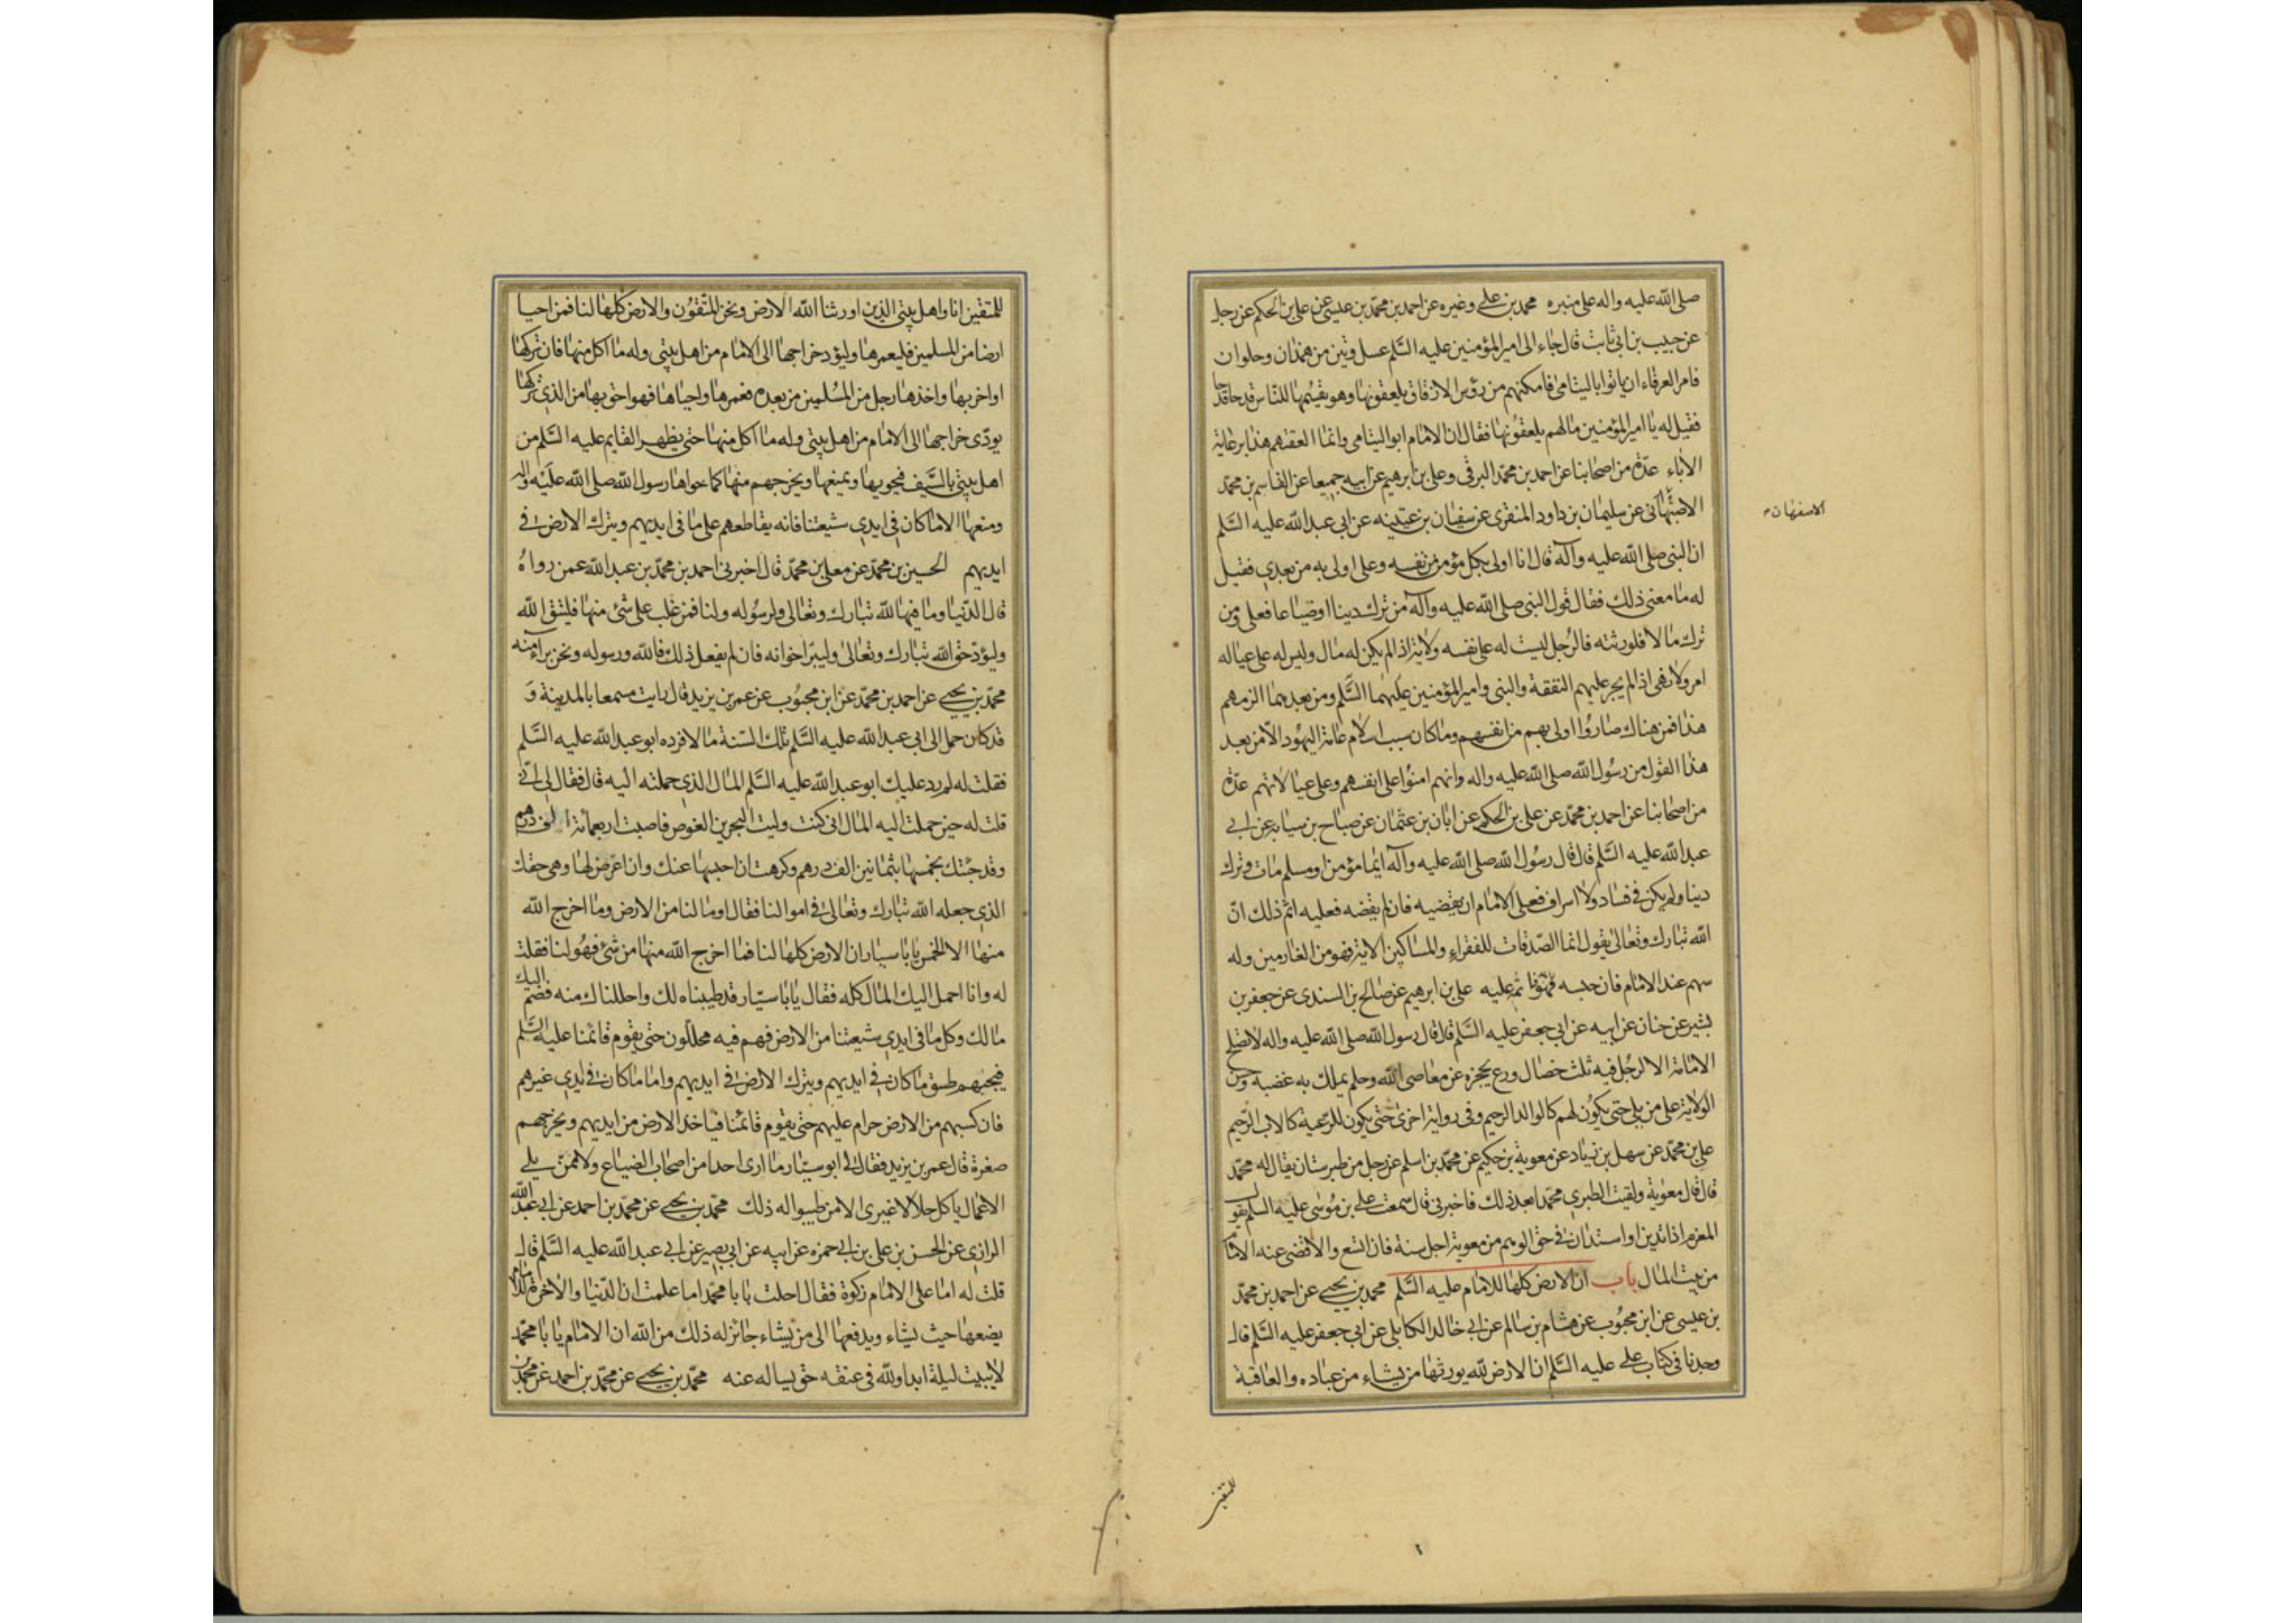 صلى الله عليه واله على منبره محمد بن علي وغيره عن احمد بن محمد بن عيسى عن علي بن الحكم عن رجل
عن حبيب بن ابي ثابت قال جاء الى امير المؤمنين عليه السلم عسل وتين من همدان وحلوان
فامر العرفاء ان ياتوا باليتامى فامكنهم من رؤس الازقاق يلعقونها وهو يقسمها للناس قدحا قدحا
فقيل له يا امير المؤمنين ما لهم يلعقونها فقال ان الامام ابو اليتامى وانما العقتهم هذا برعاية
الاباء عدة من اصحابنا عن احمد بن محمد البرقي وعلي بن ابرهيم عن ابيه جميعا عن القاسم بن محمد
الاصبهاني عن سليمان بن داود المنقري عن سفيان بن عيينه عن ابي عبد الله عليه السلم
الاسفهان
ان النبي صلى الله عليه وآله قال انا اولى بكل مؤمن من نفسه وعلي اولى به من بعدي فقيل
له ما معنى ذلك فقال قول النبي صلى الله عليه وآله من ترك دينا او ضياعا فعلي ومن
ترك مالا فلورثته فالرجل ليست له على نفسه ولاية اذا لم يكن له مال وليس له على عياله
امر ولا نهى اذا لم يجر عليهم النفقة والنبي وامير المؤمنين عليهما السلم ومن بعدهما الزمهم
هذا فمن هناك صاروا اولى بهم من انفسهم وما كان سبب اسلام عامة اليهود الا من بعد
هذا القول من رسول الله صلى الله عليه واله وانهم امنوا على انفسهم وعلى عيالاتهم عدة
من اصحابنا عن احمد بن محمد عن علي بن الحكم عن ابان بن عثمان عن صباح بن سيابه عن ابي
عبد الله عليه السلم قال قال رسول الله صلى الله عليه وآله ايما مؤمن او مسلم مات وترك
دينا ولم يكن في فساد ولا اسراف فعلى الامام ان يقضيه فان لم يقضه فعليه اثم ذلك ان
الله تبارك وتعالى يقول انما الصدقات للفقراء والمساكين الاية فهو من الغارمين وله
سهم عند الامام فان حبسه فهو اثمه عليه علي بن ابرهيم عن صالح بن السندي عن جعفر بن
بشير عن حنان عن ابيه عن ابي جعفر عليه السلم قال قال رسول الله صلى الله عليه واله لا تصلح
الامامة الا لرجل فيه ثلث خصال ورع يحجزه عن معاصى الله وحلم يملك به غضبه وحسن
الولاية على من يلي حتى يكون لهم كالوالد الرحيم وفي رواية اخرى حتى يكون للرعية كالاب الرحيم
علي بن محمد عن سهل بن زياد عن معوية بن حكيم عن محمد بن اسلم عن رجل من طبرستان يقال له محمد
قال قال معوية ولقيت الطبري محمدا بعد ذلك فاخبرني قال سمعت علي بن موسى عليه السلم يقول
المغرم اذا تدين او استدان في حق الوهم من معوية اجل سنة فان اتسع والا قضى عنه الامام
من بيت المال باب ان الارض كلها للامام عليه السلم محمد بن يحيى عن احمد بن محمد
بن عيسى عن ابن محبوب عن هشام بن سالم عن ابي خالد الكابلي عن ابي جعفر عليه السلم قال
وجدنا في كتاب علي عليه السلم ان الارض لله يورثها من يشاء من عباده والعاقبة
للمتقين
للمتقين انا واهل بيتي الذين اورثنا الله الارض ونحن المتقون والارض كلها لنا فمن احيا
ارضا من المسلمين فليعمرها وليؤد خراجها الى الامام من اهل بيتي وله ما اكل منها فان تركها
او اخربها واخذها رجل من المسلمين من بعده فعمرها واحياها فهو احق بها من الذي تركها
يودي خراجها الى الامام من اهل بيتي وله ما اكل منها حتى يظهر القايم عليه السلم من
اهل بيتي بالسيف فيحويها ويمنعها ويخرجهم منها كما حواها رسول الله صلى الله عليه واله
ومنعها الا ما كان في ايدي شيعتنا فانه يقاطعهم على ما في ايديهم ويترك الارض في
ايديهم الحسين بن محمد عن معلى بن محمد قال اخبرني احمد بن محمد بن عبد الله عمن رواه
قال الدنيا وما فيها لله تبارك وتعالى ولرسوله ولنا فمن غلب على شئ منها فليتق الله
وليؤد حق الله تبارك وتعالى وليبر اخوانه فان لم يفعل ذلك فالله ورسوله ونحن براء منه
محمد بن يحيى عن احمد بن محمد عن ابن محبوب عن عمر بن يزيد قال رايت مسمعا بالمدينة و
قد كان حمل الى ابي عبد الله عليه السلم تلك السنة مالا فرده ابو عبد الله عليه السلم
فقلت له لم رد عليك ابو عبد الله عليه السلم المال الذي حملته اليه قال فقال لي اني
قلت له حين حملت اليه المال اني كنت وليت البحرين الغوص فاصبت اربعمائة الف درهم
وقد جئتك بخمسها بثمانين الف درهم وكرهت ان احبسها عنك وان اعرض لها وهي حقك
الذي جعله الله تبارك وتعالى في اموالنا فقال اوما لنا من الارض وما اخرج الله
منها الا الخمس يا با سيار ان الارض كلها لنا فما اخرج الله منها من شئ فهو لنا فقلت
له وانا احمل اليك المال كله فقال يا با سيار قد طيبناه لك واحللناك منه فضم اليك
مالك وكل ما في ايدي شيعتنا من الارض فهم فيه محللون حتى يقوم قائمنا عليه السلم
فيجبهم طسق ما كان في ايديهم ويترك الارض في ايديهم واما ما كان في ايدي غيرهم
فان كسبهم من الارض حرام عليهم حتى يقوم قائمنا فياخذ الارض من ايديهم ويخرجهم
صغرة قال عمر بن يزيد فقال لي ابو سيار ما ارى احدا من اصحاب الضياع ولا ممن يلي
الاعمال ياكل حلالا غيري الا من طيبوا له ذلك محمد بن يحيى عن محمد بن احمد عن ابي عبد الله
الرازي عن الحسن بن علي بن ابي حمزه عن ابيه عن ابي بصير عن ابي عبد الله عليه السلم قال
قلت له اما على الامام زكوة فقال احلت يا با محمد اما علمت ان الدنيا والاخرة للامام
يضعها حيث يشاء ويدفعها الى من يشاء جائز له ذلك من الله ان الامام يا با محمد
لا يبيت ليلة ابدا ولله في عنقه حق يساله عنه محمد بن يحيى عن محمد بن احمد عن محمد بن